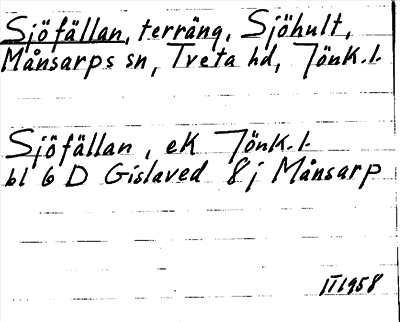 Sjöfällan, terräng, Sjöhult,
Månsarps sn, Tveta hd, Jönk.l.
Sjöfällan, ek Jönk.l.
bl 6 D Gislaved 8j Månsarp
II 1958